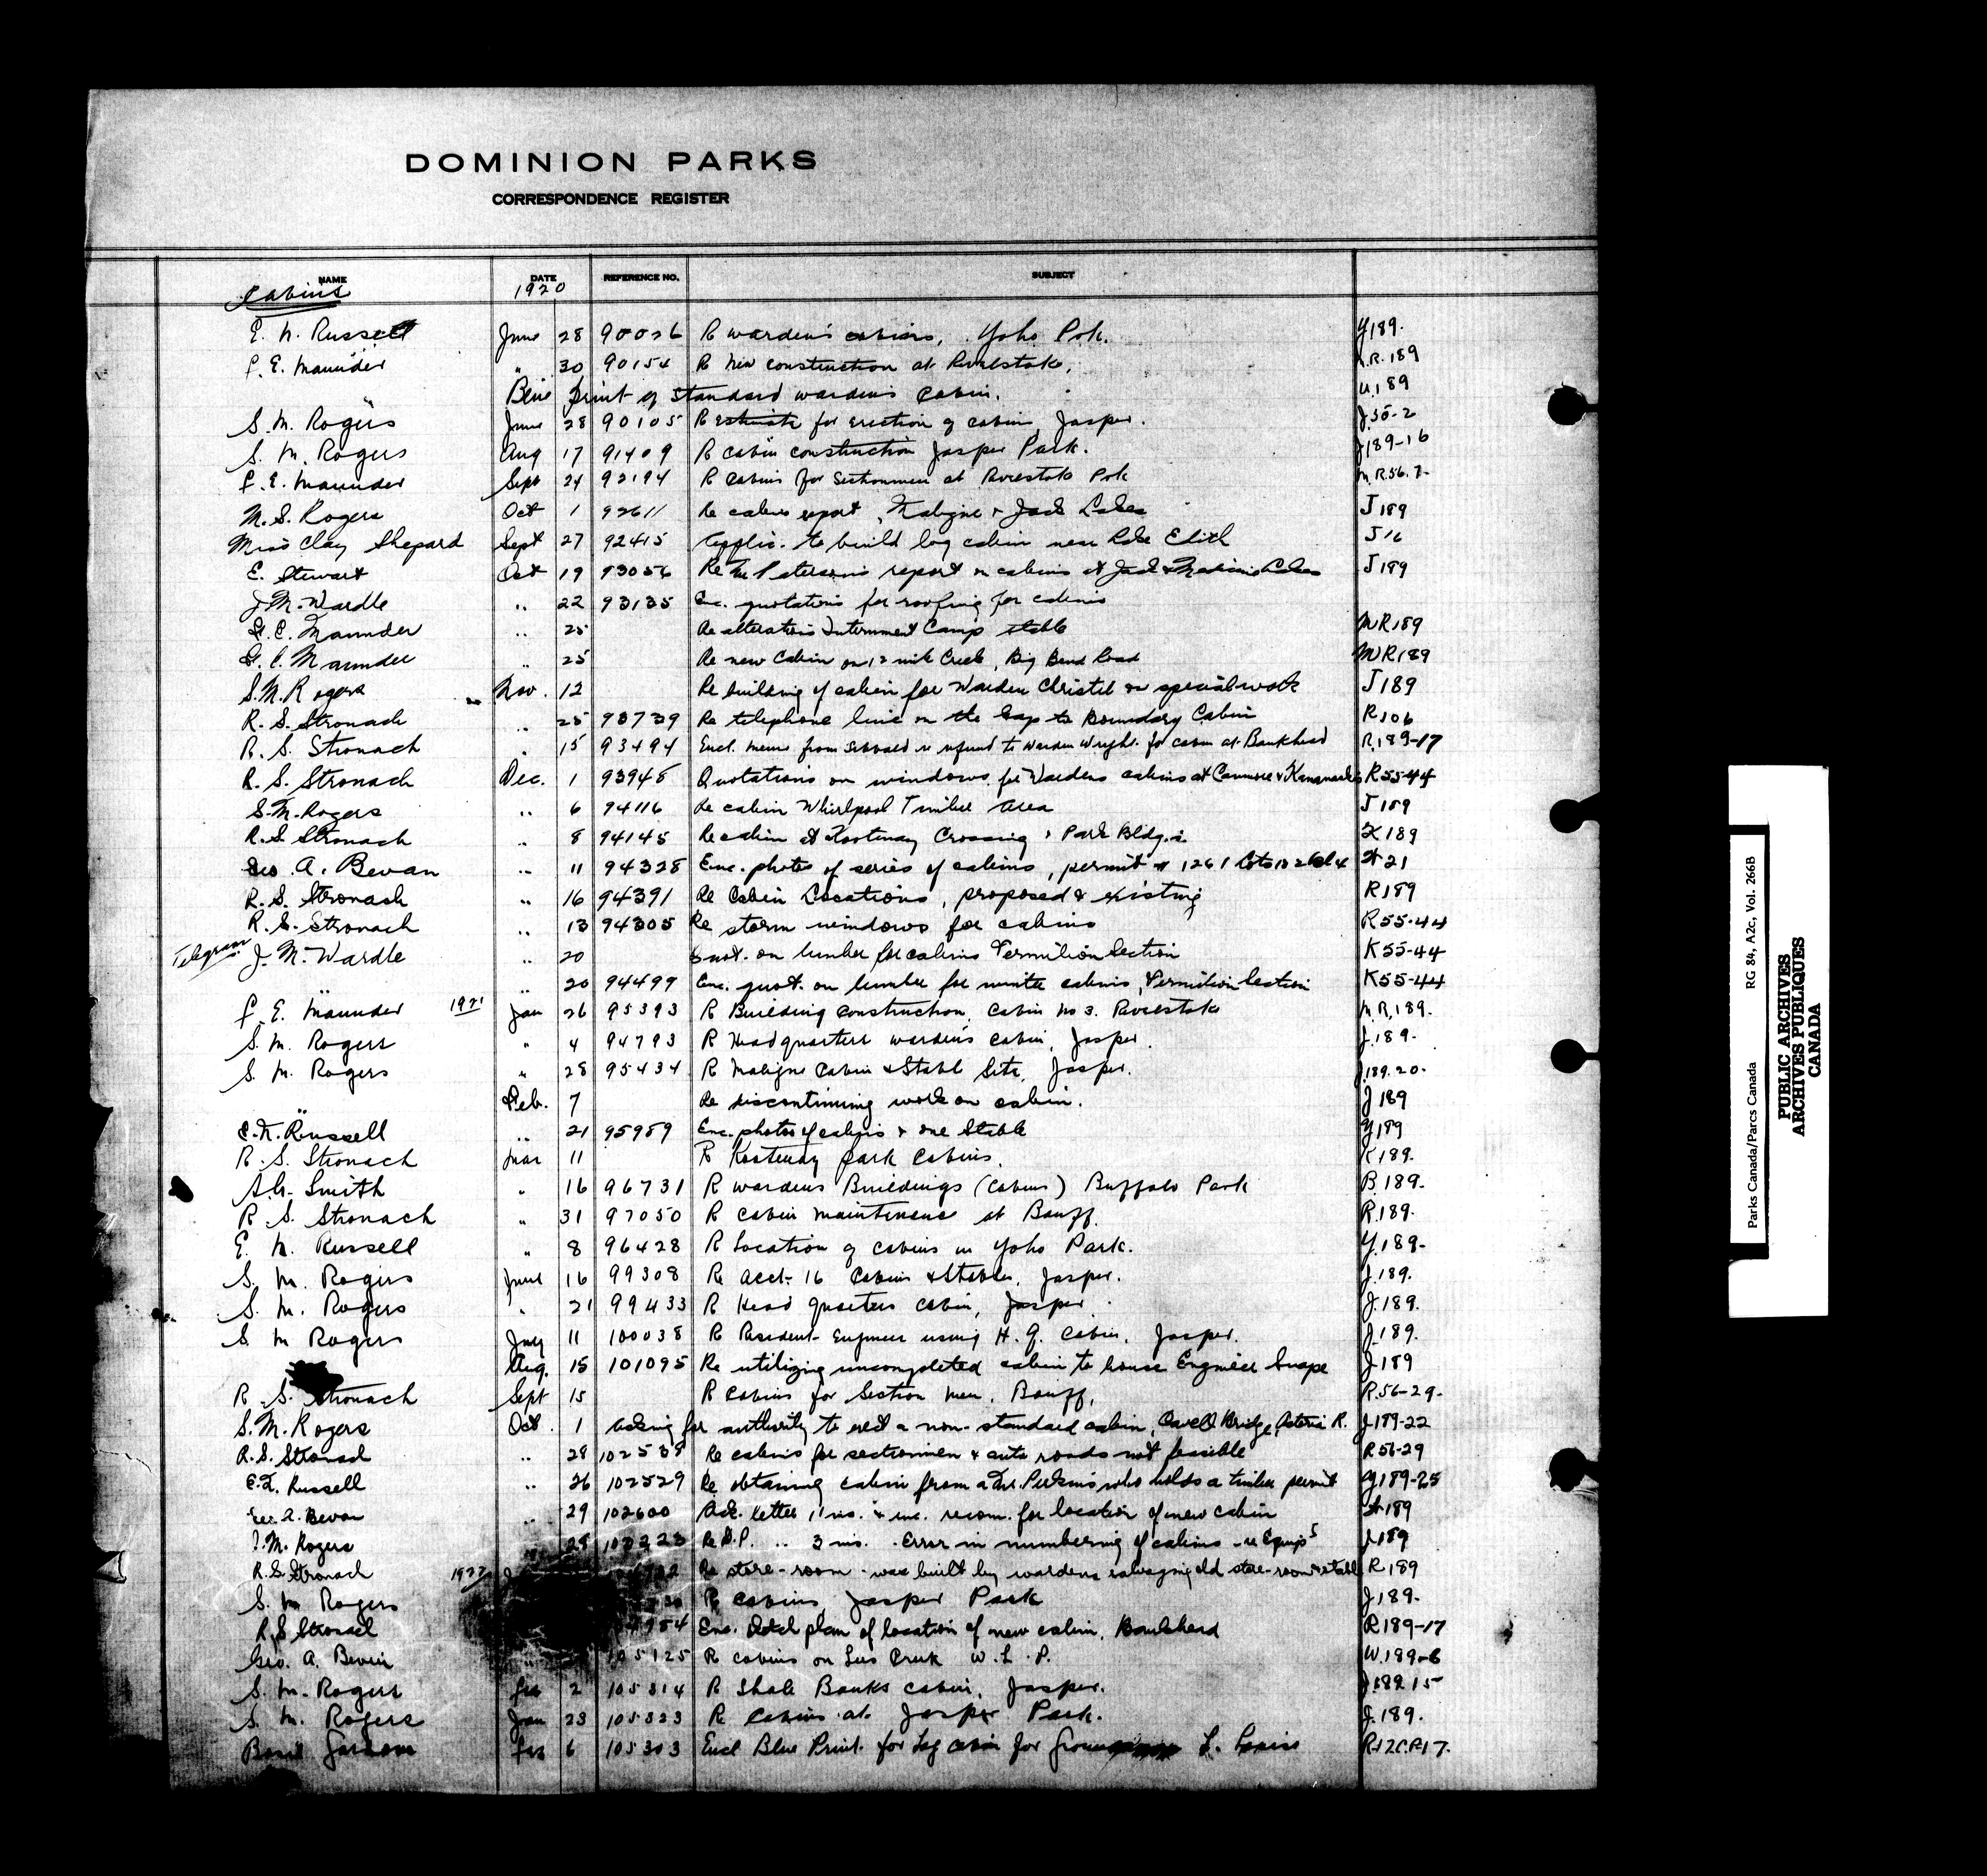 DOMINION PARKS
CORRESPONDENCE REGISTER
NAME DATE REFERENCE NO. SUBJECT
Cabins 1920
E. N. Russell June 28 90026 R warden's cabins, Yoho Pok. Y189.
F. E. Maunder " 30 90154 R New construction at Revelstoke, M.R.189
Blue print of standard wardens cabin. U189
S. M. Rogers June 28 90105 R estimate for erection of cabin, Jasper. J.55-2
S. M. Rogers Aug 17 91409 R cabin construction Jasper Park. J189-16
F. E. Maunder Sept 24 92194 R Cabins for Sectionmen at Revelstoke Pok M.R.56.7-
M. S. Rogers Oct 1 92611 Re cabins report, Maligne & Jack Lakes J189
Miss Clay Shepard Sept 27 92415 Applic. to build log cabin near Lake Edith J16
E. Stewart Oct 19 93056 Re Mr Peterson's report on cabins at Jack & Lakes J189
J. M. Wardle .. 22 93135 Enc. quotations for roofing for cabins
F. E. Maunder .. 25 Re alterations Internment Camp stable MR189
F. E. Maunder .. 25 Re new Cabin on 12 mile Creek, Big Bend Road MR189
S. M. Rogers Nov. 12 Re building of cabin for Warden Christil on special work J189
R. S. Stronach .. 25 93739 Re telephone line on the Gap to Boundary Cabin R106
R. S. Stronach . 15 93494 Encl. memo from Sibbald re refund to Warden Wright for cabin at Bankhead R189-17
R. S. Stronach Dec. 1 93948 Quotations on windows for Wardens cabins at Canmore & Kananaskis R55-44
S. M. Rogers .. 6 94116 Re cabin Whirlpool Timber Area J189
R. S. Stronach .. 8 94145 Re cabin at Kootenay Crossing & Park Bldgs. K189
Geo. A. Bevan .. 11 94328 Enc. photos of series of cabins, permit # 1261 Lots 1 & 2 Bl 4 21
R. S. Stronach .. 16 94391 Re Cabin Locations, proposed & existing R189
R. S. Stronach .. 13 94305 Re storm windows for cabins R55-44
Telegram J. M. Wardle .. 20 Quot. on lumber for cabins Vermilion Section K55-44
.. 20 94499 Enc. quot. on lumber for winter cabins, Vermilion Section K55-44
F. E. Maunder 1921 Jan 26 95393 R Building construction, Cabin No 3. Revelstoke M.R.189.
S. M. Rogers " 4 94793 R Headquarters warden's cabin, Jasper. J.189.
S. M. Rogers " 28 95434 R Maligne Cabin & Stable Site, Jasper. J189.20.
Feb. 7 Re discontinuing work on cabin. J189
E. N. Russell .. 21 95989 Enc. photos of cabins & one Stable Y189
R. S. Stronach Mar 11 R Kootenay Park Cabins. K189.
A. G. Smith " 16 96731 R wardens Buildings (Cabins) Buffalo Park B.189.
R. S. Stronach " 31 97050 R cabin maintenance at Banff. R.189.
E. N. Russell " 8 96428 R Location of cabins in Yoho Park. Y.189-
S. M. Rogers June 16 99308 Re Acct- 16 Cabins & Stables, Jasper. J.189.
S. M. Rogers " 21 99433 R Head quarters cabin, Jasper J.189.
S. M. Rogers July 11 100038 R Resident Engineer using H. Q. Cabin. Jasper. J.189.
Aug. 15 101095 Re utilizing uncompleted cabin to house Engineer Snape J189
R. S. Stronach Sept 15 R Cabins for Section Men, Banff. R.56-29-
S. M. Rogers Oct. 1 asking for authority to erect a non-standard cabin, Cavell Bridge, Astoria R. J189-22
R. S. Stronach .. 28 102538 Re cabins for sectionmen & auto roads not feasible R56-29
E. N. Russell .. 26 102529 Re obtaining cabin from a Mr. Perkins who holds a timber permit Y189-25
Geo. A. Bevan .. 29 102600 Ack. letter 11 ins. & enc. recom. for location of new cabin 189
S. M. Rogers 28 Re 3 ins. Error in numbering of cabins - re Equip J189
R. S. Stronach 1922 Re store-room - was built by wardens salvaging old store-room & stable R189
S. M. Rogers R cabins Jasper Park J189.
R. S. Stronach Enc. plan of location of new cabin, Bankhead R189-17
Geo. A. Bevin 105125 R cabins on Lees Creek W. L. P. W.189-6
S. M. Rogers Feb 2 105314 R Shale Banks cabin, Jasper. J189 15
S. M. Rogers Jan 23 105323 R Cabins at Jasper Park. J.189.
Basil Gardom Feb 6 105303 Encl Blue Print for Log cabin for L. Louise
Parks Canada/Parcs Canada RG 84, A2c, Vol. 266B
PUBLIC ARCHIVES
ARCHIVES PUBLIQUES
CANADA